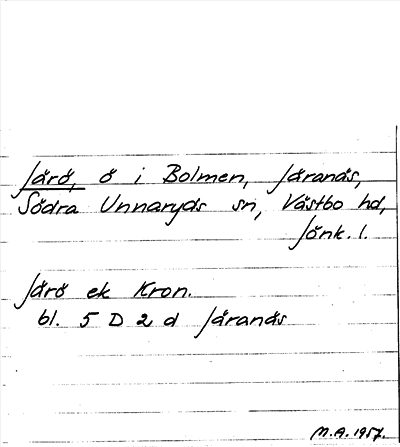 Järö, ö i Bolmen, Järanäs,
Södra Unnaryds sn, Västbo hd,
Jönk. l.
Järö ek Kron.
bl. 5 D 2 d Järanäs
M.A. 1957.